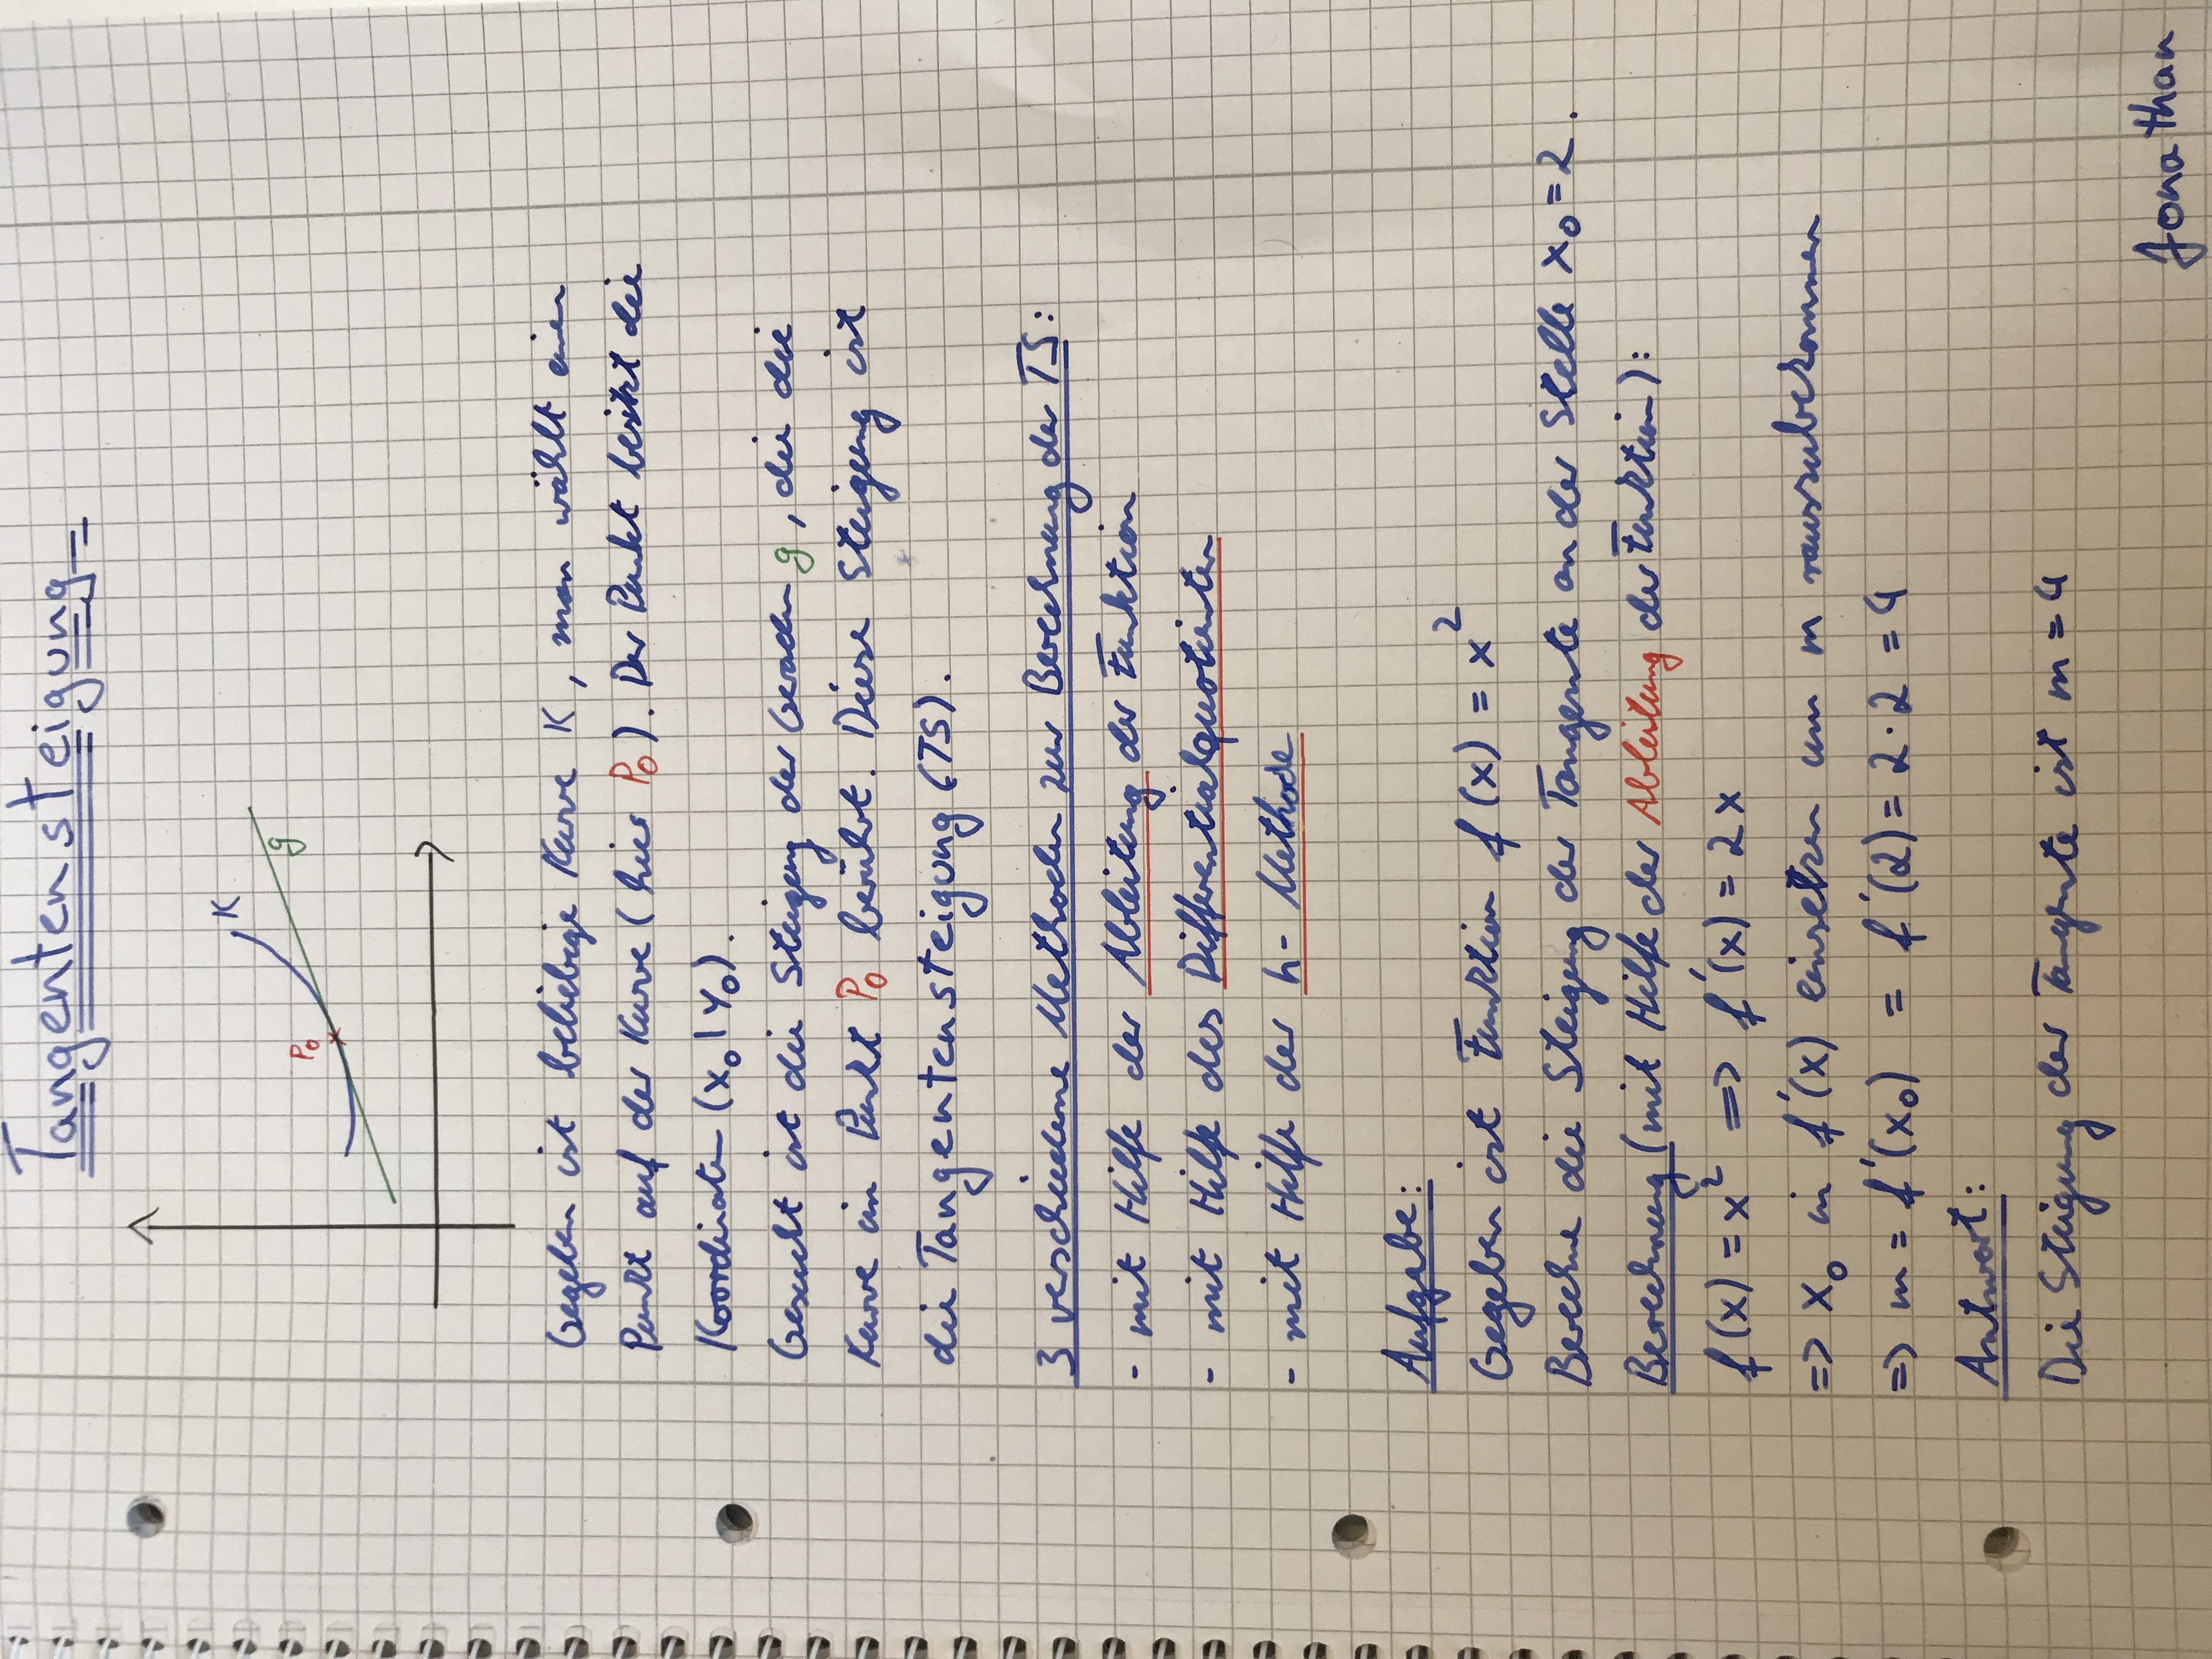 Tangentensteigung
K
g
P₀
Gegeben ist beliebige Kurve K, man wählt einen
Punkt auf der Kurve (hier P₀). Der Punkt besitzt die
Koordinaten (x₀|y₀).
Gesucht ist die Steigung der Geraden g, die die
Kurve im Punkt P₀ berührt. Diese Steigung ist
die Tangentensteigung (TS).
3 verschiedene Methoden zur Berechnung der TS:
- mit Hilfe der Ableitung der Funktion
- mit Hilfe des Differentialquotienten
- mit Hilfe der h-Methode
Aufgabe:
Gegeben ist Funktion f(x) = x²
Berechne die Steigung der Tangente an der Stelle x₀=2.
Berechnung (mit Hilfe der Ableitung der Funktion):
f(x) = x² => f'(x) = 2x
=> x₀ in f'(x) einsetzen um m rauszubekommen
=> m = f'(x₀) = f'(2) = 2·2 = 4
Antwort:
Die Steigung der Tangente ist m = 4
Jonathan